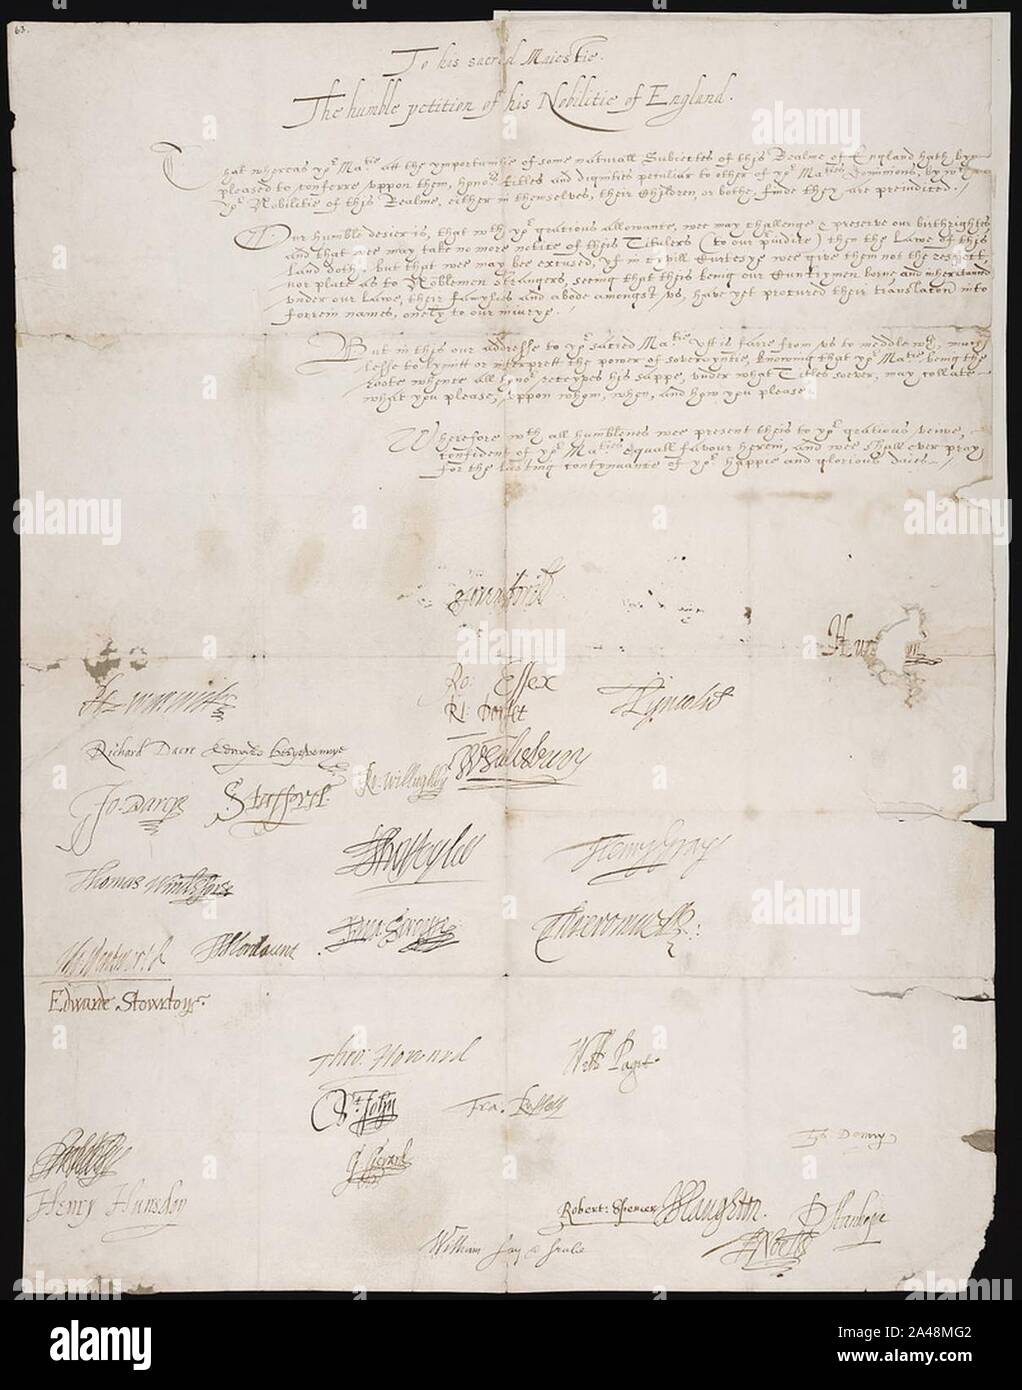 63.
To his sacred Maiestie.
The humble petition of his Nobilitie of England.
That whereas yor Matie att the ymportunitie of some naturall Subiectes of this Realme of England hath byn
pleased to conferre vppon them, honors titles and dignities peculiar to other of yor Maties Dominions, by wch
yor Nobilitie of this Realme, either in themselves, their Children, or bothe, finde they are preiudiced.
Our humble desier is, that wth yor gratious allowance, wee may challenge & preserve our birthrightes
and that wee may take no more notice of theis Titulers (to our priudice) then the Lawe of this
Land doth, but that wee may bee excused, yf in civill Curtesye wee give them not the respect
nor place as to Noblemen strangers, seeing that theis being our Cuntrymen borne and inheritanced
vnder our Lawe, their famylies and abode amongst vs, have yet procured their translacon into
forrein names, onely to our iniurye.
But in this our addresse to yor sacred Matie ytt is farre from vs to meddle wth, much
lesse to lymitt or interprett the power of soverayntie, knowing that yor Matie being the
roote whence all honor receyves his sappe, vnder what Titles soever, may collate
what you please, vppon whom, when, and how you please.
Wherefore wth all humblenes wee present theis to yor gratious veiwe,
confident of yor Maties equall favour herein, and wee shall ever pray
for the lasting contynuance of yor happie and glorious daies
Ro: Essex
Ri: Dorset
Lyncoln
Richard Dacre
W Salisbury
Ro: Willughby
Jo: Darcye
Stafford
Henry Gray
Thomas Windesore
Mordaunt
Edwarde Stowrton.
Tho: Howard
Will: Paget.
St. John
Fra. Russell
Henry Hunsdon
Robert: Spencer
P Stanhope
William Say & Seale
alamy
Image ID: 2A48MG2
www.alamy.com